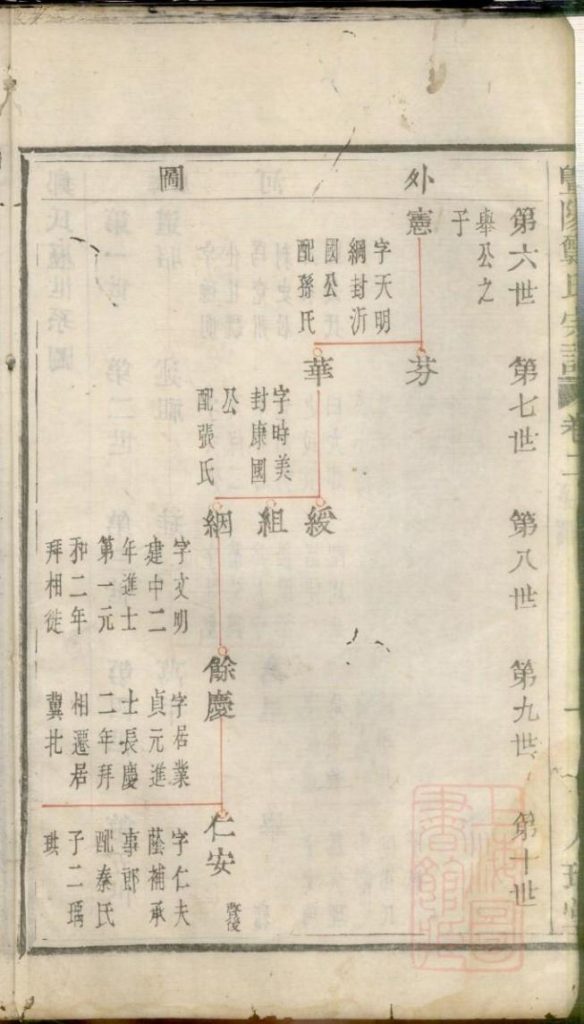 暨陽鄭氏宗譜
卷二
第六世
第七世
第八世
第九世
第十世
外
圖
舉公之
子
憲
字天明
綱封沂
國公
配孫氏
芬
華
字時美
封康國
公
配張氏
綬
組
絪
字文明
建中二
年進士
第一元
和二年
拜相徙
餘慶
字居業
貞元進
士長慶
二年拜
相遷居
冀北
仁安
字仁夫
蔭補承
事郎
配秦氏
子二瑀
珙
上海圖
書館藏